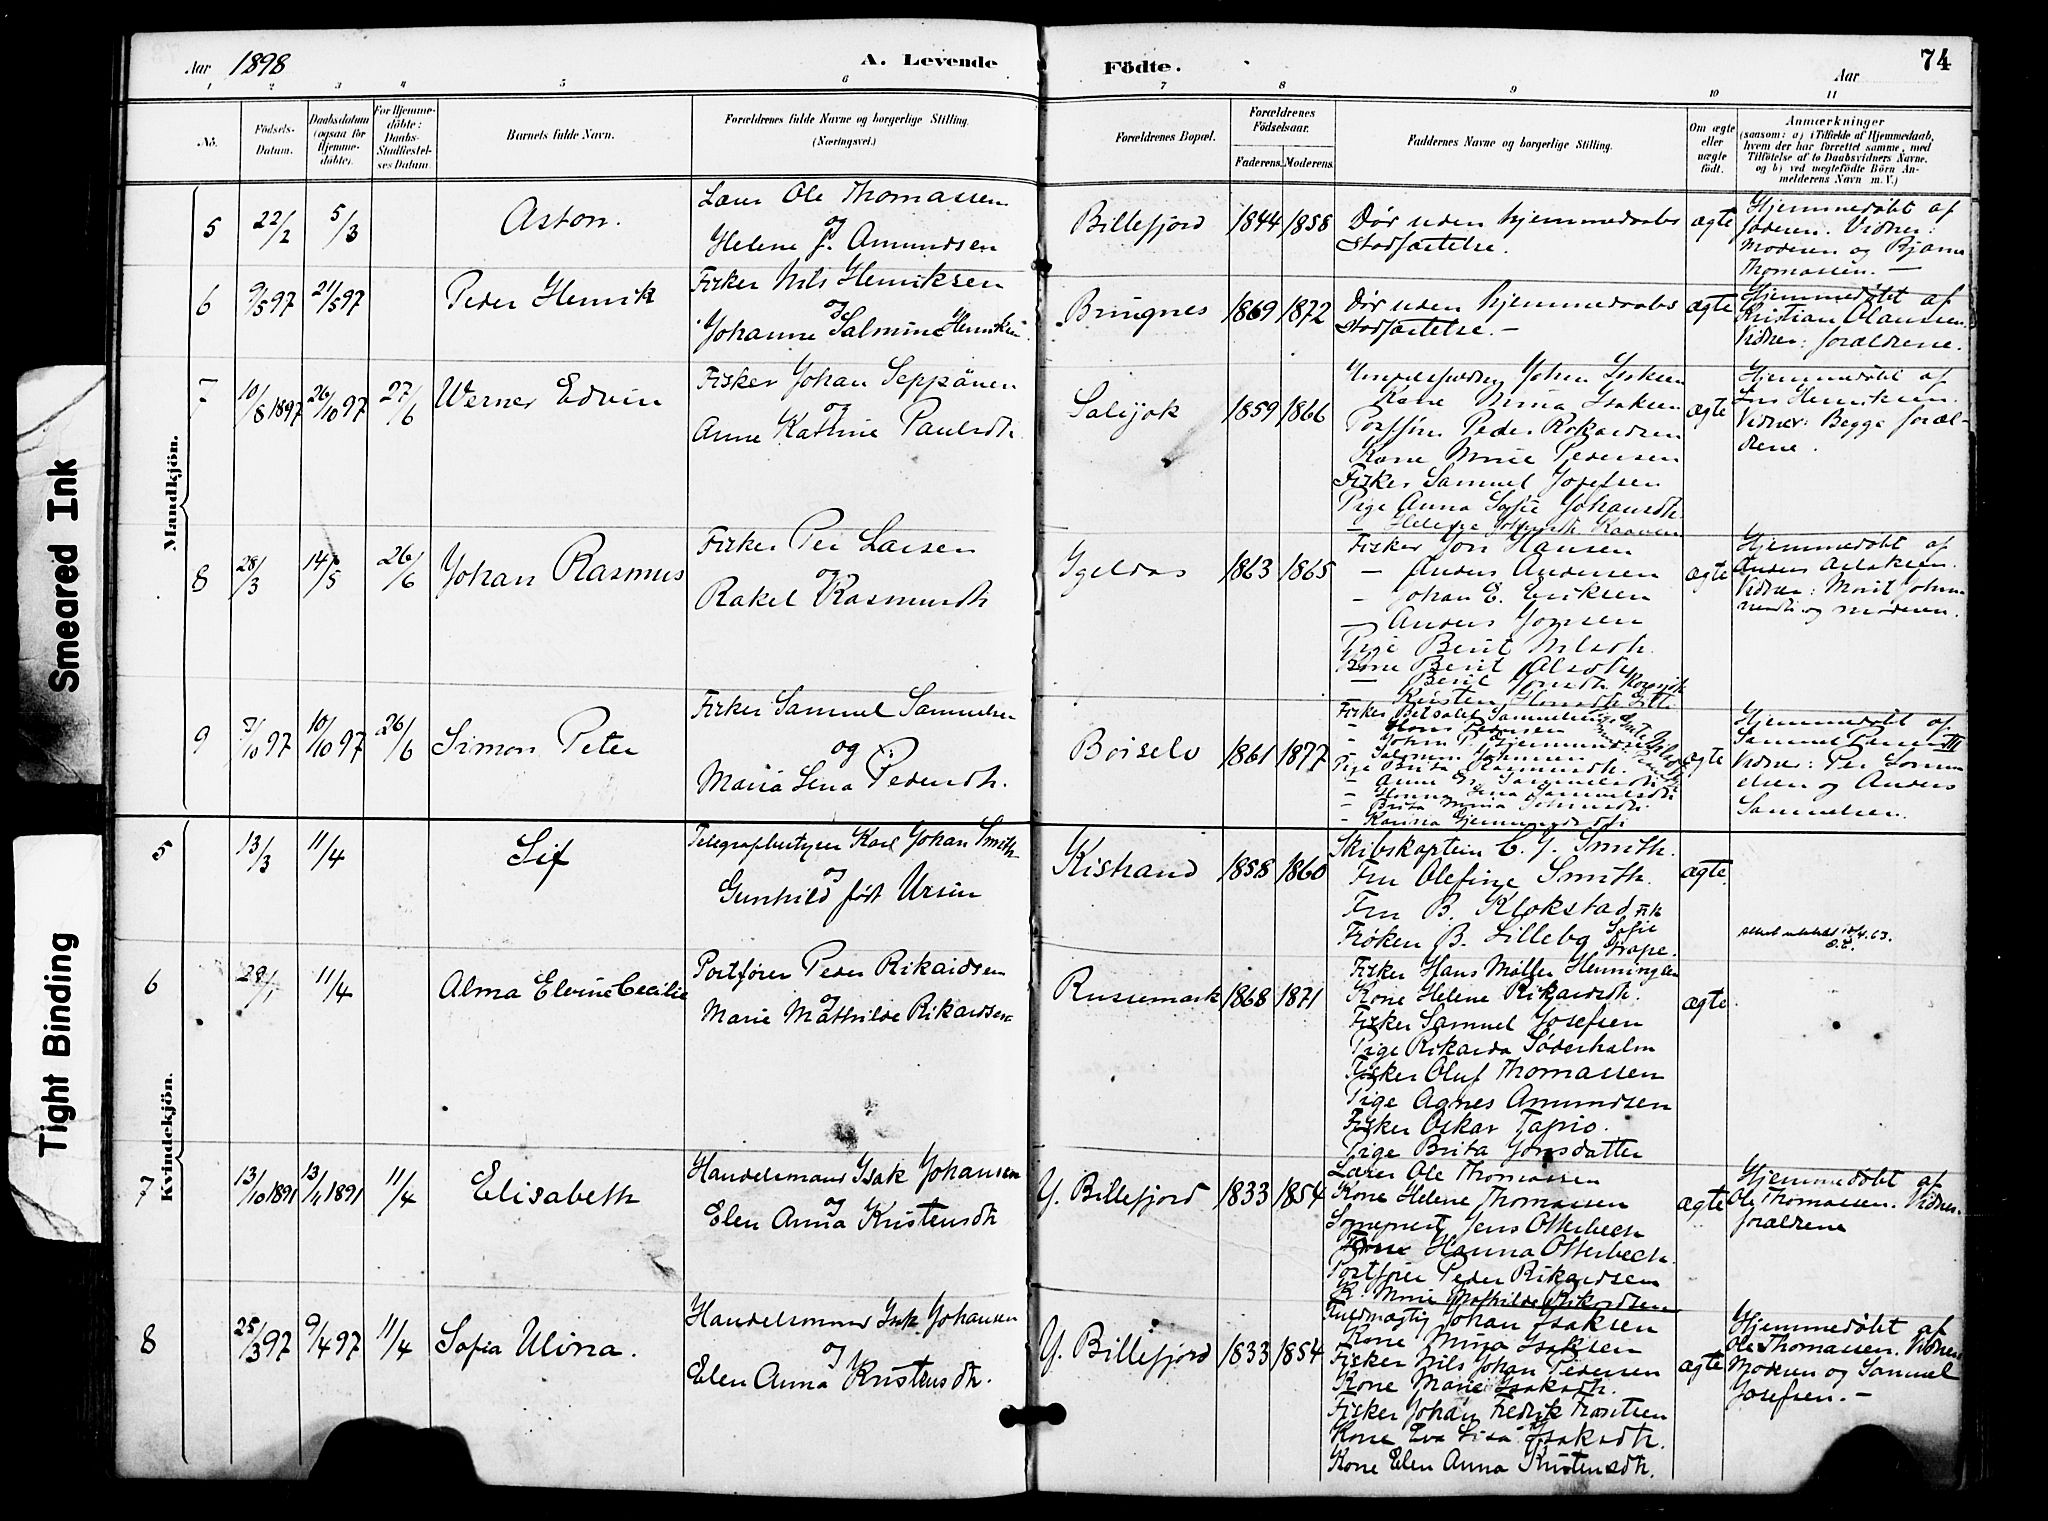 Aar 1898
A. Levende Födte.
Aar
74
1 2 3 4 5 6 7 8 9 10 11
No.
Födsels-Datum.
Daabsdatum (ogsaa for Hjemme-döbte).
For Hjemme-döbte: Daabs-Stadfæstel-ses Datum.
Barnets fulde Navn.
Forældrenes fulde Navne og borgerlige Stilling.
(Næringsvei.)
Forældrenes Bopæl.
Forældrenes Födselsaar.
Faderens. Moderens.
Faddernes Navne og borgerlige Stilling.
Om ægte eller uægte födt.
Anmærkninger
(saasom: a) i Tilfælde af Hjemmedaab,
hvem der har forrettet samme, med
Tilföielse af to Daabsvidners Navne,
og b) ved uægtefödte Börn An-
melderens Navn m. V.)
Mandkjön.
5 22/2 5/3 Aston.
Lærer Ole Thomassen
og
Helene f. Amundsen
Billefjord 1844 1858
Dør uden hjemmedaabs
stadfæstelse.
ægte
Hjemmedøbt af
faderen. Vidner:
Moderen og Bjarne
Thomassen. —
6 9/5 97 21/5 97 Peder Henrik
Fisker Nils Henriksen
og
Johanne Salmine Henriksen
Bringnes 1869 1872
Dør uden hjemmedaabs
stadfæstelse. —
ægte
Hjemmedøbt af
Kristian Olaussen.
Vidner: forældrene.
7 10/8 1897 26/10 97 27/6 Werner Edvin
Fisker Johan Seppänen
og
Anne Katrine Paulsdtr.
Salijok 1859 1866
Johan Isaksen
Kone Mina Isaksen
Postfører Peder Rikardsen
Kone Marie Pedersen
Fisker Samuel Josefsen
Pige Anna Sofie Johansdtr.
ægte
Hjemmedøbt af
Henriksen.
Vidner: Begge foræl-
drene.
8 28/3 14/5 26/6 Johan Rasmus
Fisker Per Larsen
og
Rakel Rasmusdtr
Igeldas 1863 1865
Fisker Jon Hansen
— Anders Andersen
— Johan E. Eriksen
— Anders Jonsen
Pige Berit Nilsdtr.
Kone Berit Olsdtr
ægte
Hjemmedøbt af
Anders Aslaksen.
Vidner: Marit Johan-
nesdtr og moderen.
9 3/10 97 10/10 97 26/6 Simon Peter
Fisker Samuel Samuelsen
og
Maria Lena Pedersdtr.
Børselv 1861 1877
ægte
Hjemmedøbt af
Samuel III
Vidner: Per Samu-
elsen og Anders
Samuelsen.
Kvindekjön.
5 13/3 11/4 Sif
Telegrafbestyrer Karl Johan Smith
og
Gunhild født Ursin
Kistrand 1858 1860
Skibskaptein C. J. Smith.
Fru Olefine Smith.
Fru B. Klokstad
Frøken B. Lilleby
ægte.
6 28/1 11/4 Alma Elvine Cecilie
Postfører Peder Rikardsen
og
Marie Mathilde Rikardsen
Russemark 1868 1871
Fisker Hans Møller Henningsen
Kone Helene Rikardsdtr.
Fisker Samuel Josefsen
Pige Rikarda Söderholm
Fisker Oluf Thomassen
Pige Agnes Amundsen
Fisker Oskar Tapio.
Pige Brita Jonsdatter
ægte
7 13/10 1891 13/11 1891 11/4 Elisabeth
Handelsmand Isak Johansen
og
Elen Anna Kristensdtr
Y. Billefjord 1833 1854
Lærer Ole Thomassen
Kone Helene Thomassen
Jens Otterbech
Kone Hanna Otterbech.
Postfører Peder Rikardsen
K. Marie Mathilde Rikardsen
ægte
Hjemmedøbt af
Ole Thomassen. Vidner
forældrene
8 25/3 97 9/4 97 11/4 Sofia Ulina.
Handelsmand Isak Johansen
og
Elen Anna Kristensdtr.
Y. Billefjord 1833 1854
Fuldmægtig Johan Isaksen
Kone Mina Isaksen
Fisker Nils Johan Pedersen
Kone Marie Isaksdtr.
Fisker Johan Fredrik Frantsen
Kone Eva Lisa Isaksdtr.
Kone Elen Anna Kristensdtr.
ægte
Hjemmedøbt af
Ole Thomassen. Vidner
Moderen og Samuel
Josefsen. —
Smeared Ink
Tight Binding